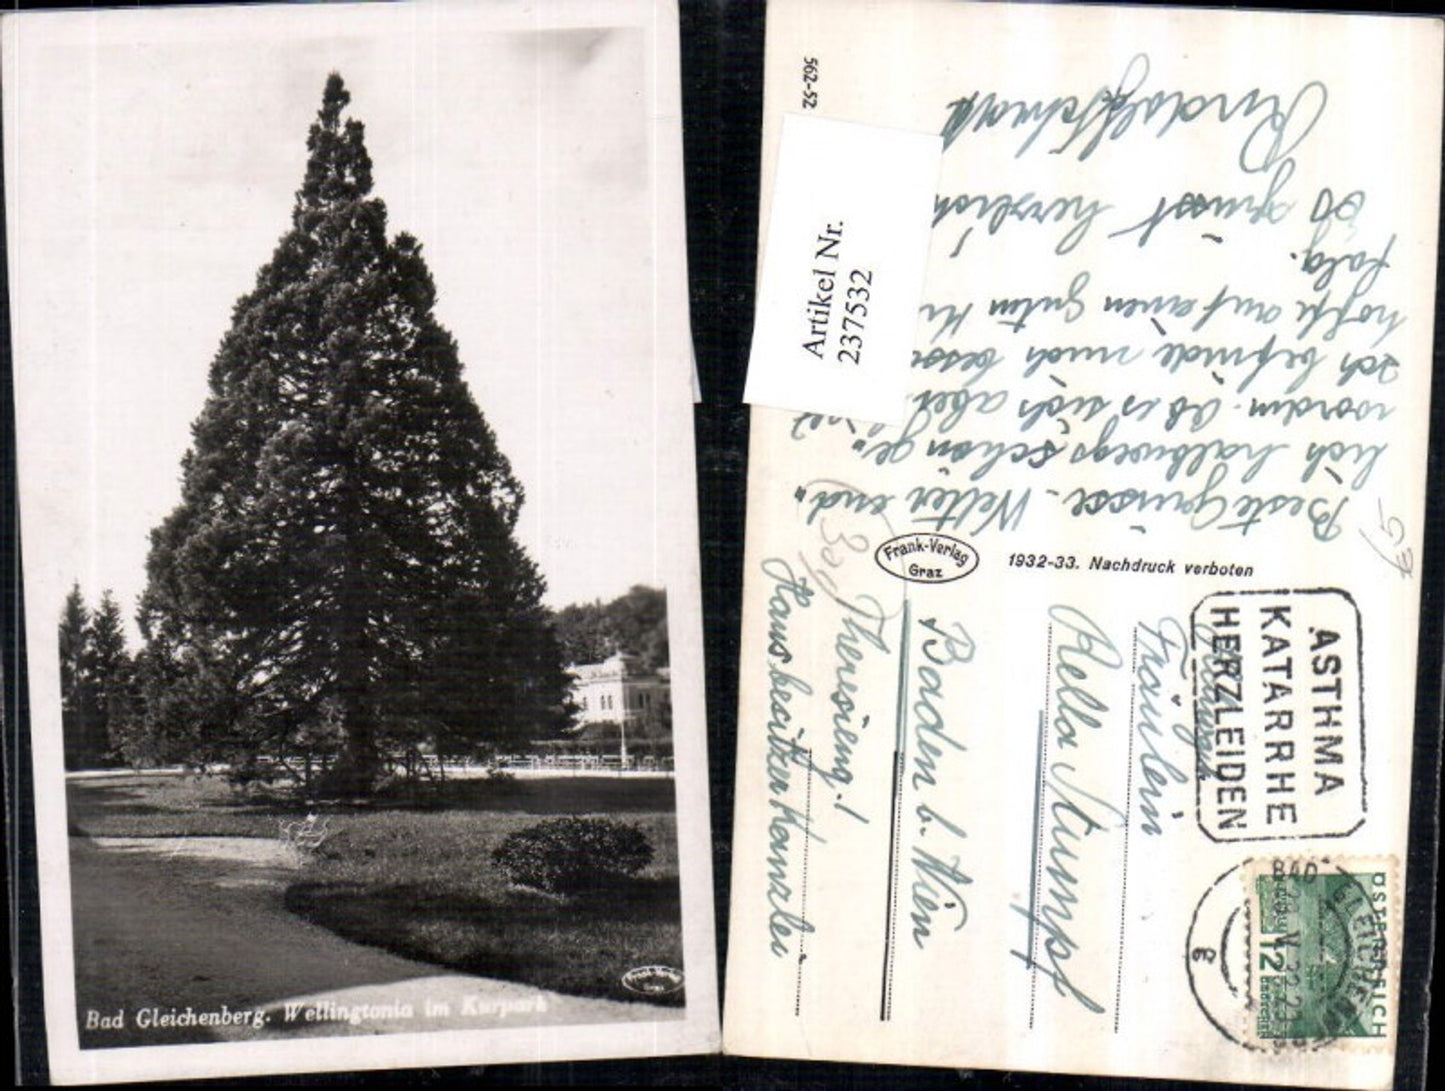 Bad Gleichenberg. Wellingtonia im Kurpark
Frank-Verlag
Graz
562-52
Artikel Nr.
237532
Beste Grüsse. Wetter end-
lich halbwegs schön ge-
worden. Ob es sich aber
Ich befinde mich
hoffe auf einen guten
folg.
grüsst herzlich
Frank-Verlag
Graz
1932-33. Nachdruck verboten
ASTHMA
KATARRHE
HERZLEIDEN
BAD GLEICHENBERG
ÖSTERREICH
12
GROSCHEN
Fräulein
Hella Stumpf
Baden b. Wien
Theresieng. 1
Hausbesitzerkanzlei